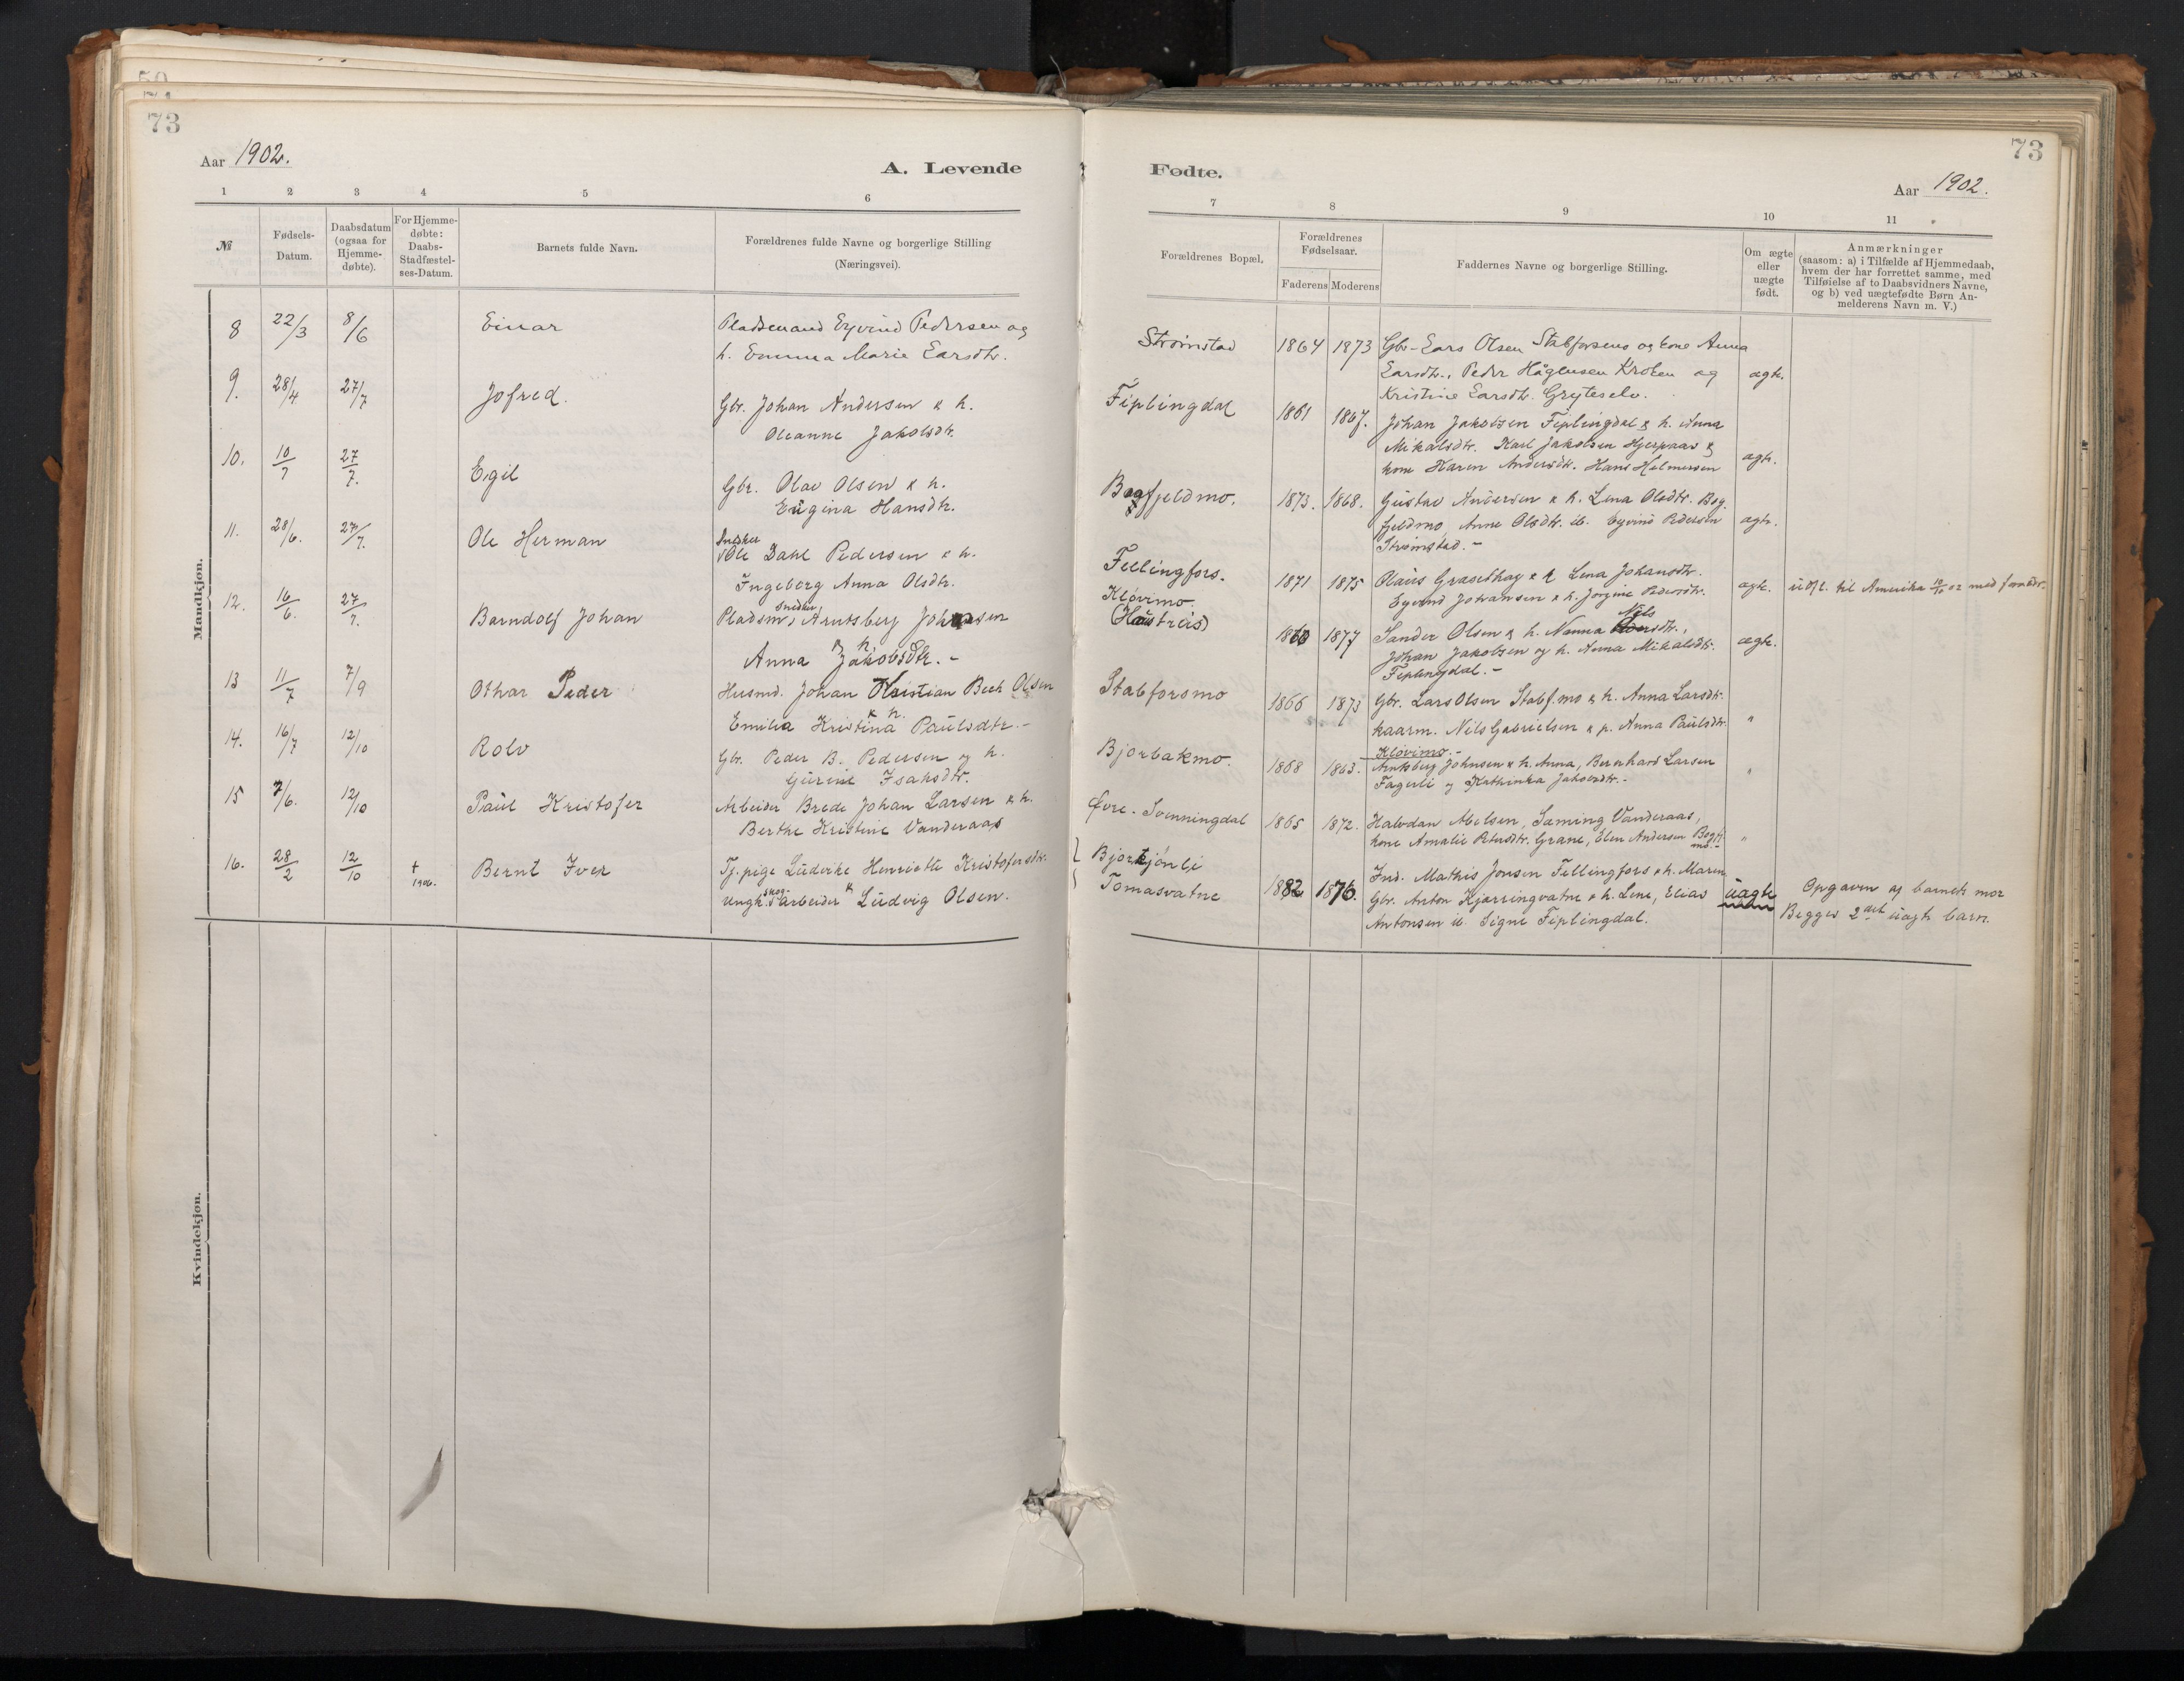 73
Aar 1902.
A. Levende
1 2 3 4 5 6
№
Fødsels-Datum.
Daabsdatum (ogsaa for Hjemme-døbte).
For Hjemme-døbte: Daabs-Stadfæstel-ses-Datum.
Barnets fulde Navn.
Forældrenes fulde Navne og borgerlige Stilling (Næringsvei).
Mandkjøn.
8 22/3 8/6 Einar Pladsemand Eyvind Pedersen og
h. Emma Marie Larsdtr.
9. 28/4 27/7 Jofred. Gbr. Johan Andersen & h.
Oleanne Jakobsdtr.
10. 10/7 27/7. Egil Gbr. Olav Olsen & h.
Eugina Hansdtr.
11. 28/6. 27/7. Ole Herman Snedker Ole Dahl Pedersen & h.
Ingeborg Anna Olsdtr.
12. 16/6. 27/7. Barndolf Johan Pladsm, snedker Arntsberg Johnsen
& h. Anna Jakobsdtr. -
13 11/7 7/9 Othar Peder Husmd. Johan Kristian Bech Olsen
& h. Emilia Kristina Paulsdtr. -
14. 16/7 12/10 Rolv Gbr. Peder B. Pedersen og h.
Gurine Isaksdtr.
15 7/6. 12/10 Paul Kristofer Arbeider Brede Johan Larsen & h.
Berthe Kristine Vanderaas
16. 28/2 12/10 † 1906. Bernt Iver Tj.pige Ludvike Henriette Kristofersdtr.
Ungk. skog-arbeider & Ludvig Olsen.
Kvindekjøn.
73
Fødte.
Aar 1902.
7 8 9 10 11
Forældrenes Bopæl.
Forældrenes Fødselsaar.
Faderens Moderens
Faddernes Navne og borgerlige Stilling.
Om ægte eller uægte født.
Anmærkninger
(saasom: a) i Tilfælde af Hjemmedaab,
hvem der har forrettet samme, med
Tilføielse af to Daabsvidners Navne,
og b) ved uægtefødte Børn An-
melderens Navn m. V.)
Strømstad 1864 1873 Gbr. Lars Olsen Stabforsmo og kone Anna
Larsdtr., Peder Hågensen Kroken og ægte.
Kristine Larsdtr. Gryteselv.
Fiplingdal 1861 1867. Johan Jakobsen Fiplingdal & h. Anna
Mikalsdtr. Karl Jakobsen Hjerpaas &
kone Karen Andersdtr. Hans Helmersen ægte.
Bogfjeldmo. 1873. 1868. Gustav Andersen & h. Lena Olsdtr. Bog-
fjeldmo, Anne Olsdtr. ib. Eyvind Pedersen ægte.
Strømstad. -
Fellingfors. 1871 1875 Olaus Græsethag & h Lena Johansdtr.
Eyvind Johansen & h. Jørgine Pedersdtr. ægte. udfl. til Amerika 10/10 02 med foreldr.
Kløvimo. (Haustreis) 1860 1877 Sander Olsen & h. Nanna Nilsdtr.,
Johan Jakobsen og h. Anna Mikalsdtr. ægte.
Fiplingdal. -
Stabforsmo 1866 1873 Gbr. Lars Olsen Stabf.mo & h. Anna Larsdtr.
kaarm. Nils Gabrielsen & p. Anna Paulsdtr. "
Bjorbakmo. 1868 1863. Kløvimo. -
Arntsberg Johnsen & h. Anna, Bernhard Larsen
Fagerli og Kathinka Jakobsdtr. - "
Øvre-Svenningdal 1865 1872. Halvdan Nielsen, Sæming Vanderaas,
kone Amalie Petersdtr. Grane, Elen Andersen Bogfj.mo. - "
Bjortjønli
Tomasvatne 1882 1876. Ind. Mathis Jonsen Fellingfors & h. Maren
Gbr. Anton Kjærringvatne & h. Lene, Elias uægte Opgaven af barnets mor
Antonsen ib. Signe Fiplingdal. Begges 2det uægte barn.